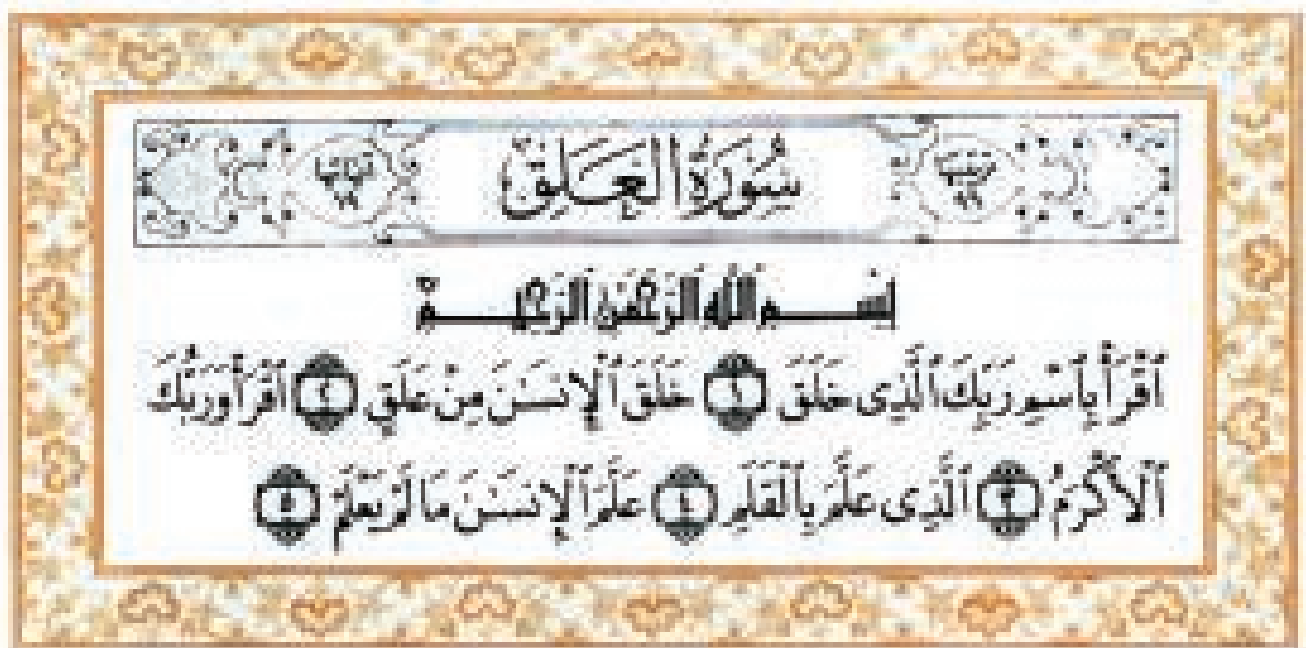 ترتيبها ٩٦ سُورَةُ العَلَقِ آياتها ١٩
بِسْمِ اللَّهِ الرَّحْمَٰنِ الرَّحِيمِ
ٱقْرَأْ بِٱسْمِ رَبِّكَ ٱلَّذِى خَلَقَ ١ خَلَقَ ٱلْإِنسَٰنَ مِنْ عَلَقٍ ٢ ٱقْرَأْ وَرَبُّكَ
ٱلْأَكْرَمُ ٣ ٱلَّذِى عَلَّمَ بِٱلْقَلَمِ ٤ عَلَّمَ ٱلْإِنسَٰنَ مَا لَمْ يَعْلَمْ ٥